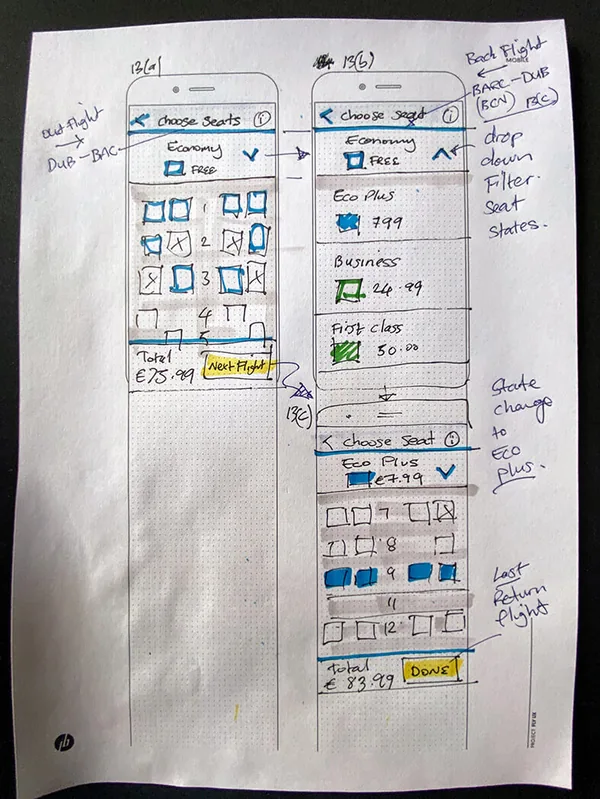 13(a)
13(b)
Back Flight
MOBILE
←
BARC-DUB
(BCN) 13(c)
Out flight
→
DUB-BAC
choose seats i
Economy
FREE
1
2
3
4
5
Total
€75.99 Next Flight
13(c)
choose seat i
Economy
FREE
drop
down
Filter.
Seat
states.
Eco Plus
799
Business
24.99
First class
50.00
State
change
to
ECO
plus.
choose seat i
Eco Plus
€7.99
7
8
9
11
12
Last
Return
flight
Total
€ 83.99 DONE